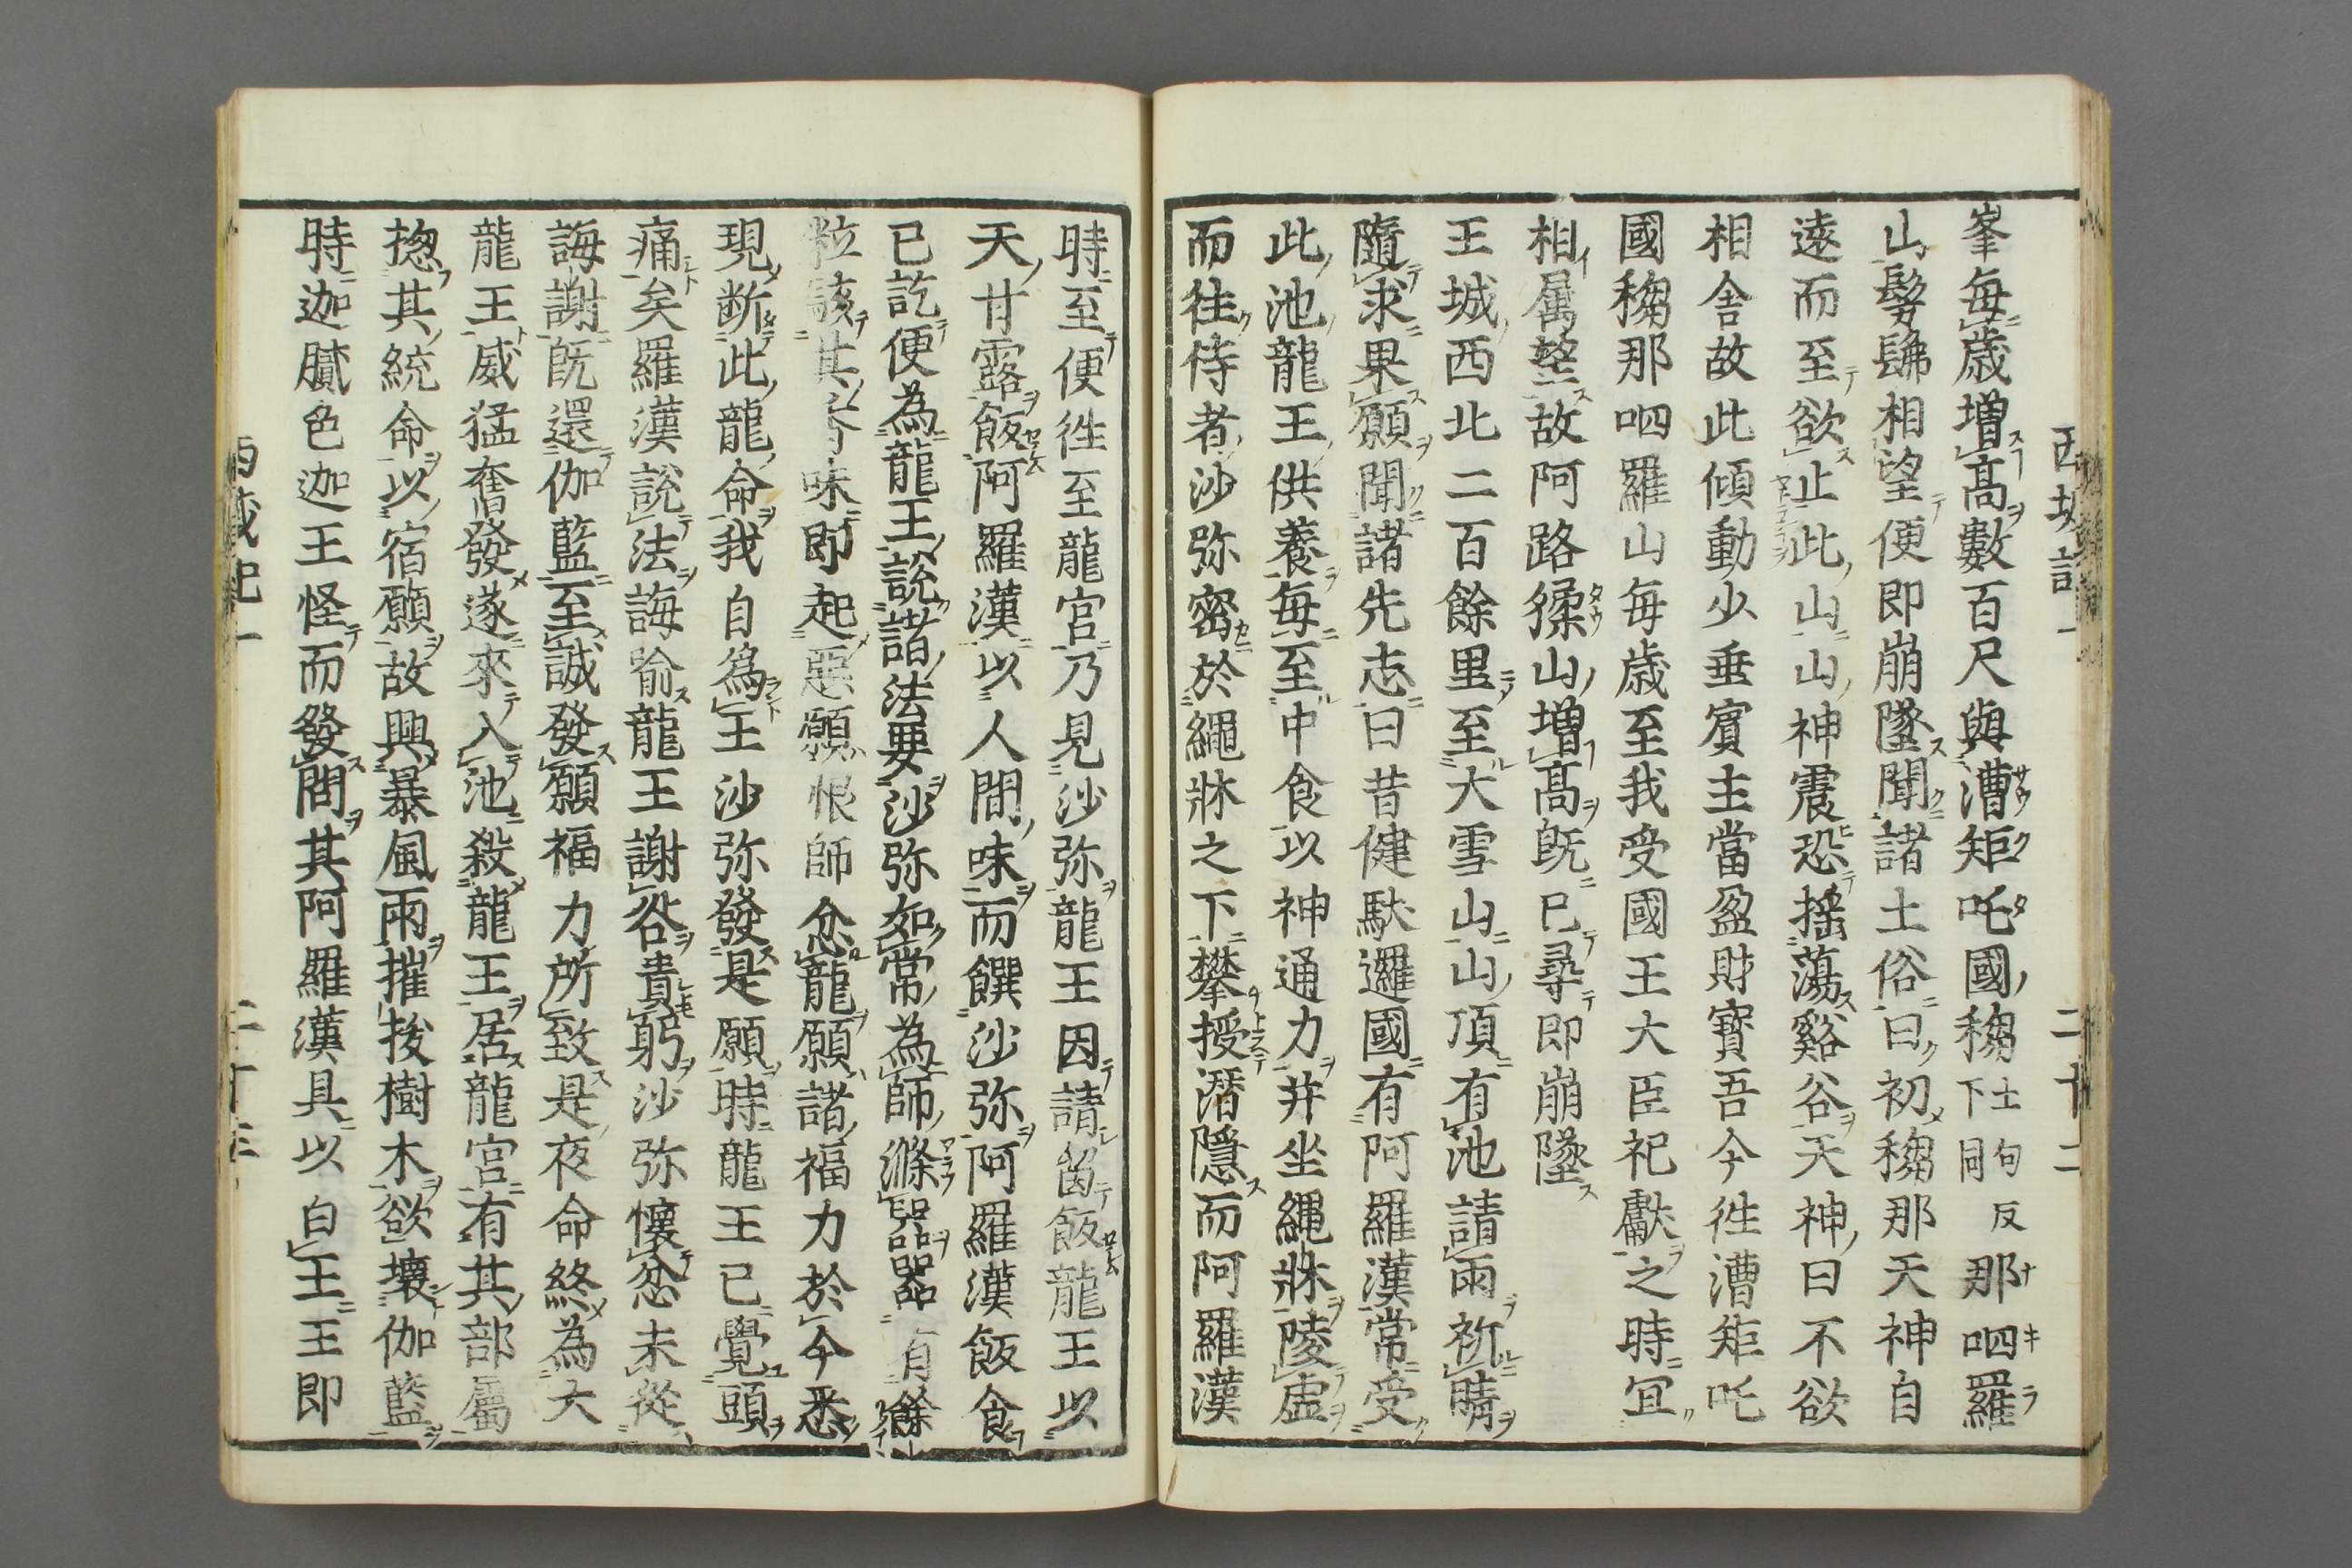 峯毎歳增髙數百尺與漕矩吒國稠士句反下同那呬羅
山髣髴相望便即崩墜聞諸土俗曰初稠那天神自
遠而至欲止此山山神震恐摇蕩谿谷天神曰不欲
相舎故此傾動少垂賓主當盈財寳吾今徃漕矩吒
國稠那呬羅山毎歳至我受國王大臣祀獻之時冝
相属望故阿路猱山增髙既已尋即崩墜
王城西北二百餘里至大雪山山頂有池請雨祈晴
隨求果願聞諸先志曰昔健馱邏國有阿羅漢常受
此池龍王供養毎至中食以神通力并坐繩牀陵虚
而徃侍者沙弥密於繩牀之下攀授潜隱而阿羅漢
時至便徃至龍宫乃見沙弥龍王因請留飯龍王以
天甘露飯阿羅漢以人間味而饌沙弥阿羅漢飯食
已訖便為龍王說諸法要沙弥如常為師滌器器有餘
粒駭其香味即起惡願恨師忿龍願諸福力於今悉
現断此龍命我自為王沙弥發是願時龍王已覺頭
痛矣羅漢說法誨喻龍王謝咎責躬沙弥懷忿未從
誨謝既還伽藍至誠發願福力所致是夜命終為大
龍王威猛奮發遂來入池殺龍王居龍宫有其部屬
揔其統命以宿願故興暴風雨摧拔樹木欲壞伽藍
時迦膩色迦王怪而發問其阿羅漢具以白王王即